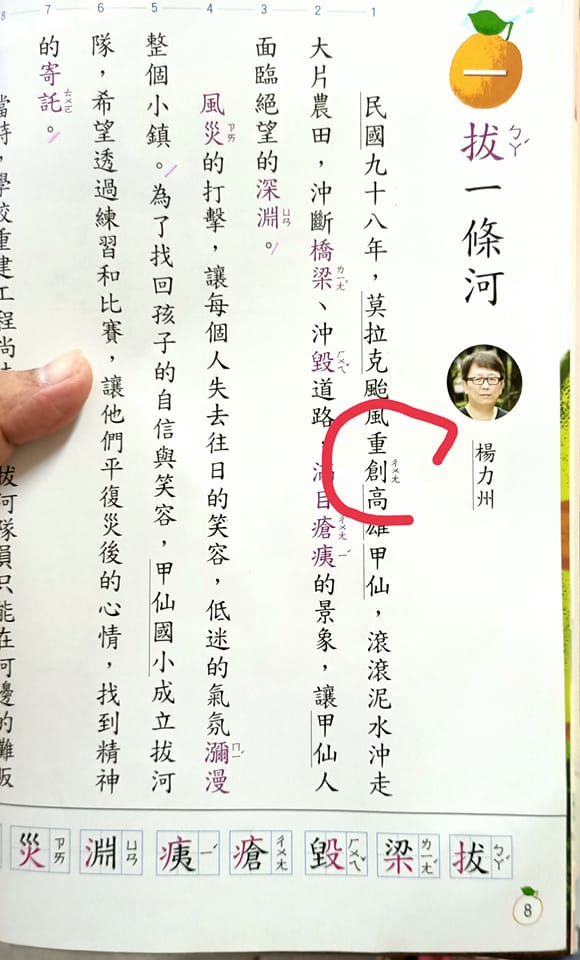 一
拔ㄅㄚˊ一條河
楊力州
1
民國九十八年，莫拉克颱風重創ㄔㄨㄤ高雄甲仙，滾滾泥水沖走
2
大片農田，沖斷橋梁ㄌㄧㄤˊ、沖毀ㄏㄨㄟˇ道路，滿目瘡ㄔㄨㄤ痍ㄧˊ的景象，讓甲仙人
3
面臨絕望的深淵ㄩㄢ。
4
風災ㄗㄞ的打擊，讓每個人失去往日的笑容，低迷的氣氛瀰ㄇㄧˊ漫
5
整個小鎮。為了找回孩子的自信與笑容，甲仙國小成立拔河
6
隊，希望透過練習和比賽，讓他們平復災後的心情，找到精神
7
的寄託ㄊㄨㄛ。
8
當時，學校重建工程尚
拔河隊員只能在河邊的攤販
拔ㄅㄚˊ
梁ㄌㄧㄤˊ
毀ㄏㄨㄟˇ
瘡ㄔㄨㄤ
痍ㄧˊ
淵ㄩㄢ
災ㄗㄞ
8